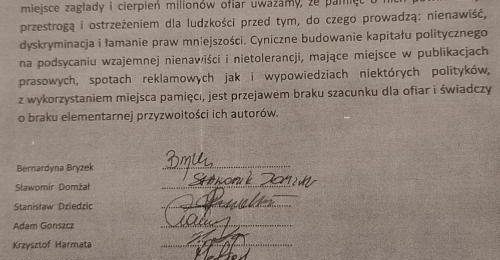 miejsce zagłady i cierpień milionów ofiar uważamy, że pamięć o nich
przestrogą i ostrzeżeniem dla ludzkości przed tym, do czego prowadzą: nienawiść,
dyskryminacja i łamanie praw mniejszości. Cyniczne budowanie kapitału politycznego
na podsycaniu wzajemnej nienawiści i nietolerancji, mające miejsce w publikacjach
prasowych, spotach reklamowych jak i wypowiedziach niektórych polityków,
z wykorzystaniem miejsca pamięci, jest przejawem braku szacunku dla ofiar i świadczy
o braku elementarnej przyzwoitości ich autorów.
Bernardyna Bryzek
Sławomir Domżał SŁAWOMIR DOMŻAŁ
Stanisław Dziedzic
Adam Gonszcz
Krzysztof Harmata